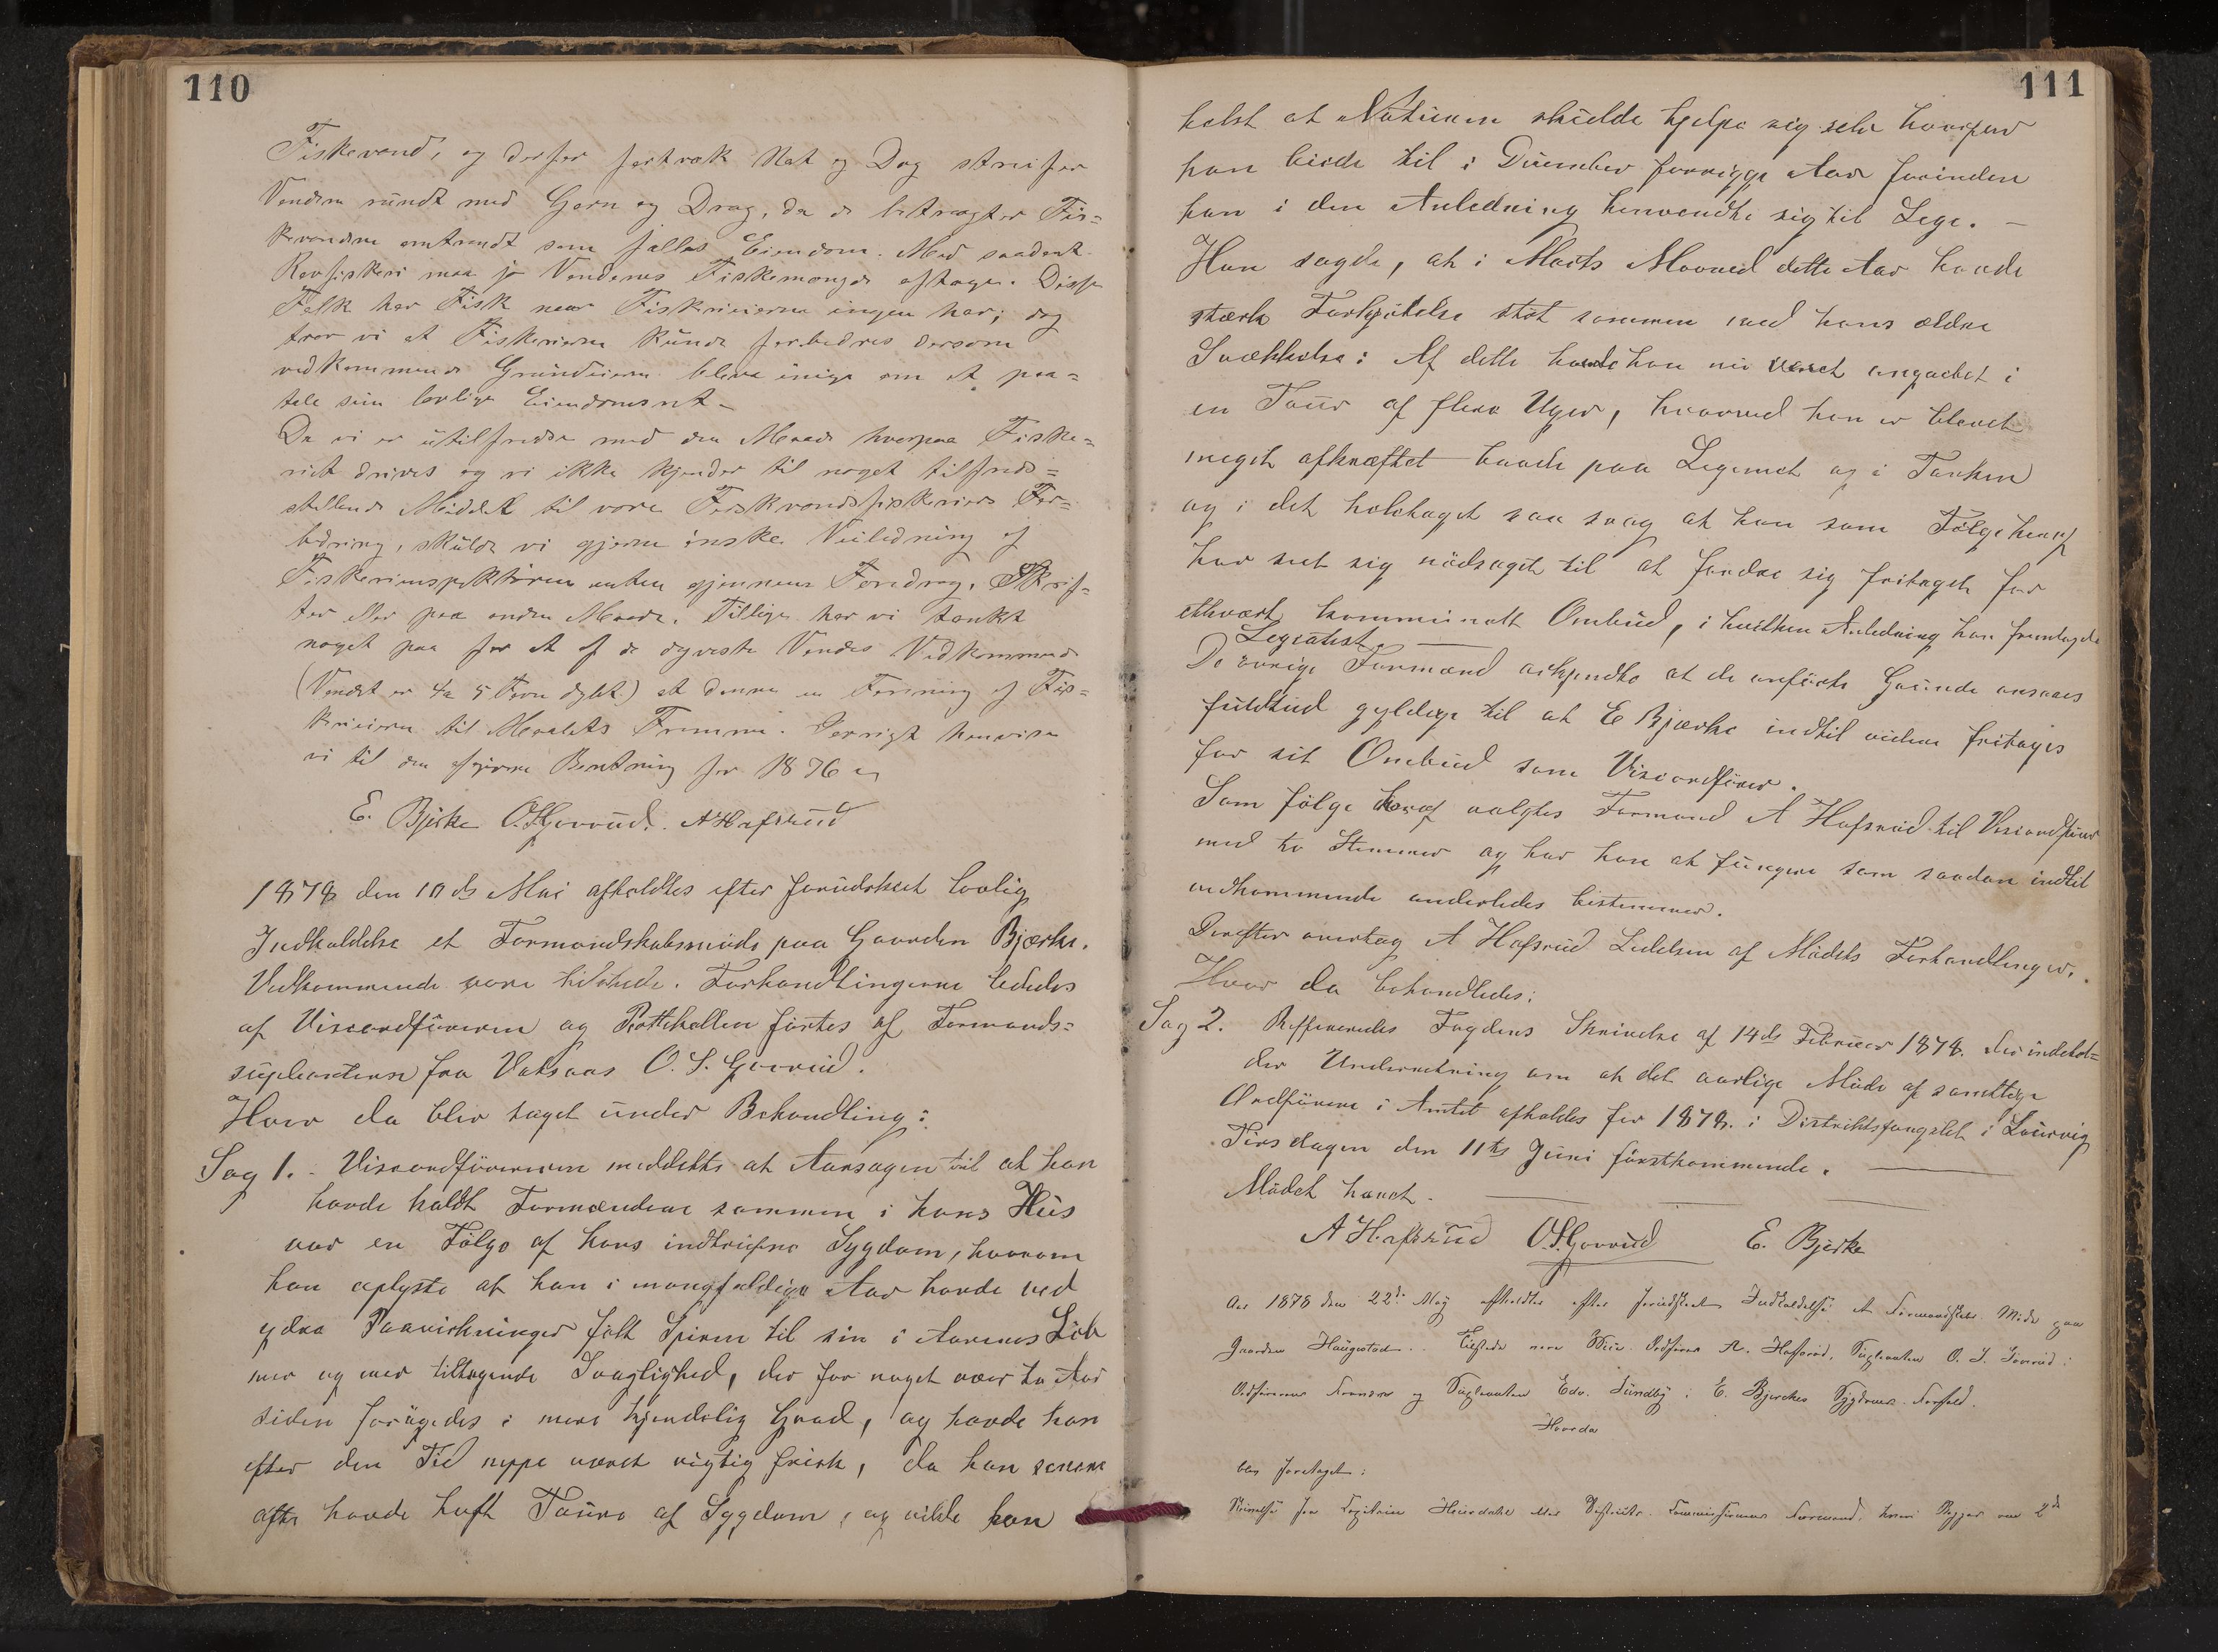 110
Fiskevand, og derfor fortræk Nat og Dag streifer
Vandene rundt med Garn og Drag, da de betragter Fis=
kevandene omtrendt som fælles Eiendom. Med saadant
Rovfiskeri maa jo Vandenes Fiskemængde aftage. Disse
Folk har Fisk naar Fiskerieierne ingen har; dog
tror vi at Fiskerierne kunde forbedres dersom
vedkommende Grundeiere bleve enige om at paa=
tale sin lovlige Eiendomsret –
Da vi er utilfredse med den Maade hvorpaa Fiske=
riet drives og vi ikke kjender til noget tilfreds=
stillende Middel til vore Ferskvandsfiskeriers For=
bedring, skulde vi gjerne ønske Veiledning af
Fiskeriinspektøren enten gjennem Foredrag, Skrif=
ter eller paa anden Maade. Tillige har vi tænkt
noget paa for et af de dyreste Vandes Vedkommende
(Vandet er 4 a 5 Favne dybt.) at danne en Forening af Fis=
kerieierne til Maalets Fremme. Forøvrigt henvise
vi til den afgivne Beretning for 1876
E. Bjerke O.S. Gavrud. A Hafsrud
1878 den 10de Mai afholdtes efter forudskeet lovlig
Indkaldelse et Formandskabsmøde paa Gaarden Bjærke.
Vedkommende vare tilstede. Forhandlingerne lededes
af Viseordføreren og Protokollen førtes af Formands=
suplianten fra Vaksaas O. S. Gavrud.
Hvor da blev taget under Behandling:
Sag 1. Viseordføreren meddelte at Aarsagen til at han
havde kaldt Formændene sammen i hans Hus
var en Følge af hans indtrufne Sygdom, hvorom
han oplyste at han i mangfoldige Aar havde ved
ydre Paavirkninger følt Spiren til sin i Aarenes Løb
mer og mer tiltagende Svaglighed, der for noget over to Aar
siden forøgedes i mere kjendelig Grad, og havde han
efter den Tid neppe været rigtig frisk, da han senere
ofte havde havt Toure af Sygdom, og vilde han
111
helst at Naturen skulde hjelpe sig selv hvorpaa
han biede til i December forrigge Aar forinden
han i den Anledning henvendte sig til Læge. –
Han sagde, at i Marts Maaned dette Aar havde
stærk Forkjølelse støt sammen med hans ældre
Svækkelse: Af dette havde han nu været angrebet i
en Tour af flere Uger, hvorved han er blevet
meget afkræftet baade paa Legemet og i Tanken
og i det heletaget saa svag at han som Følge heraf
har seet sig nødsaget til at fordre sig fritaget for
ethvert kommunalt Ombud, i hvilken Anledning han fremlagde
Legeattest.
De øvrige Formænd erkjendte at de anførte Grunde ansaaes
fuldtud gyldige til at E Bjærke indtil videre fritages
for sit Ombud som Viseordfører.
Som følge heraf valgtes Formand A Hafsrud til Viseordfører
med to Stemmer og har han at fungere som saadan indtil
vedkommende anderledes bestemmer.
Derefter overtog A Hafsrud Ledelsen af Mødets Forhandlinger.
Hvor da behandledes:
Sag 2. Reffereredes Fogdens Skrivelse af 14de Februar 1878. der indehol=
der Underretning om at det aarlige Møde af samtlige
Ordførere i Amtet afholdes for 1878. i Distriktsfængslet i Laurvig
Tirsdagen den 11te Juni førstkommende.
Mødet hævet.
A Hafsrud O.S. Gavrud E. Bjerke
Aar 1878 den 22de Maj afholdtes efter forudskeet Indkaldelse et Formandskabs Møde paa
Gaarden Haugestad. Tilstede vare Vice Ordfører A. Hafsrud, Suplianten O. S. Gavrud i
Ordførerens Fravær og Suplianten Edv. Sundby i E. Bjerckes Sygdoms Forfald.
Hvorda
blev foretaget:
Skrivelse fra Capitain